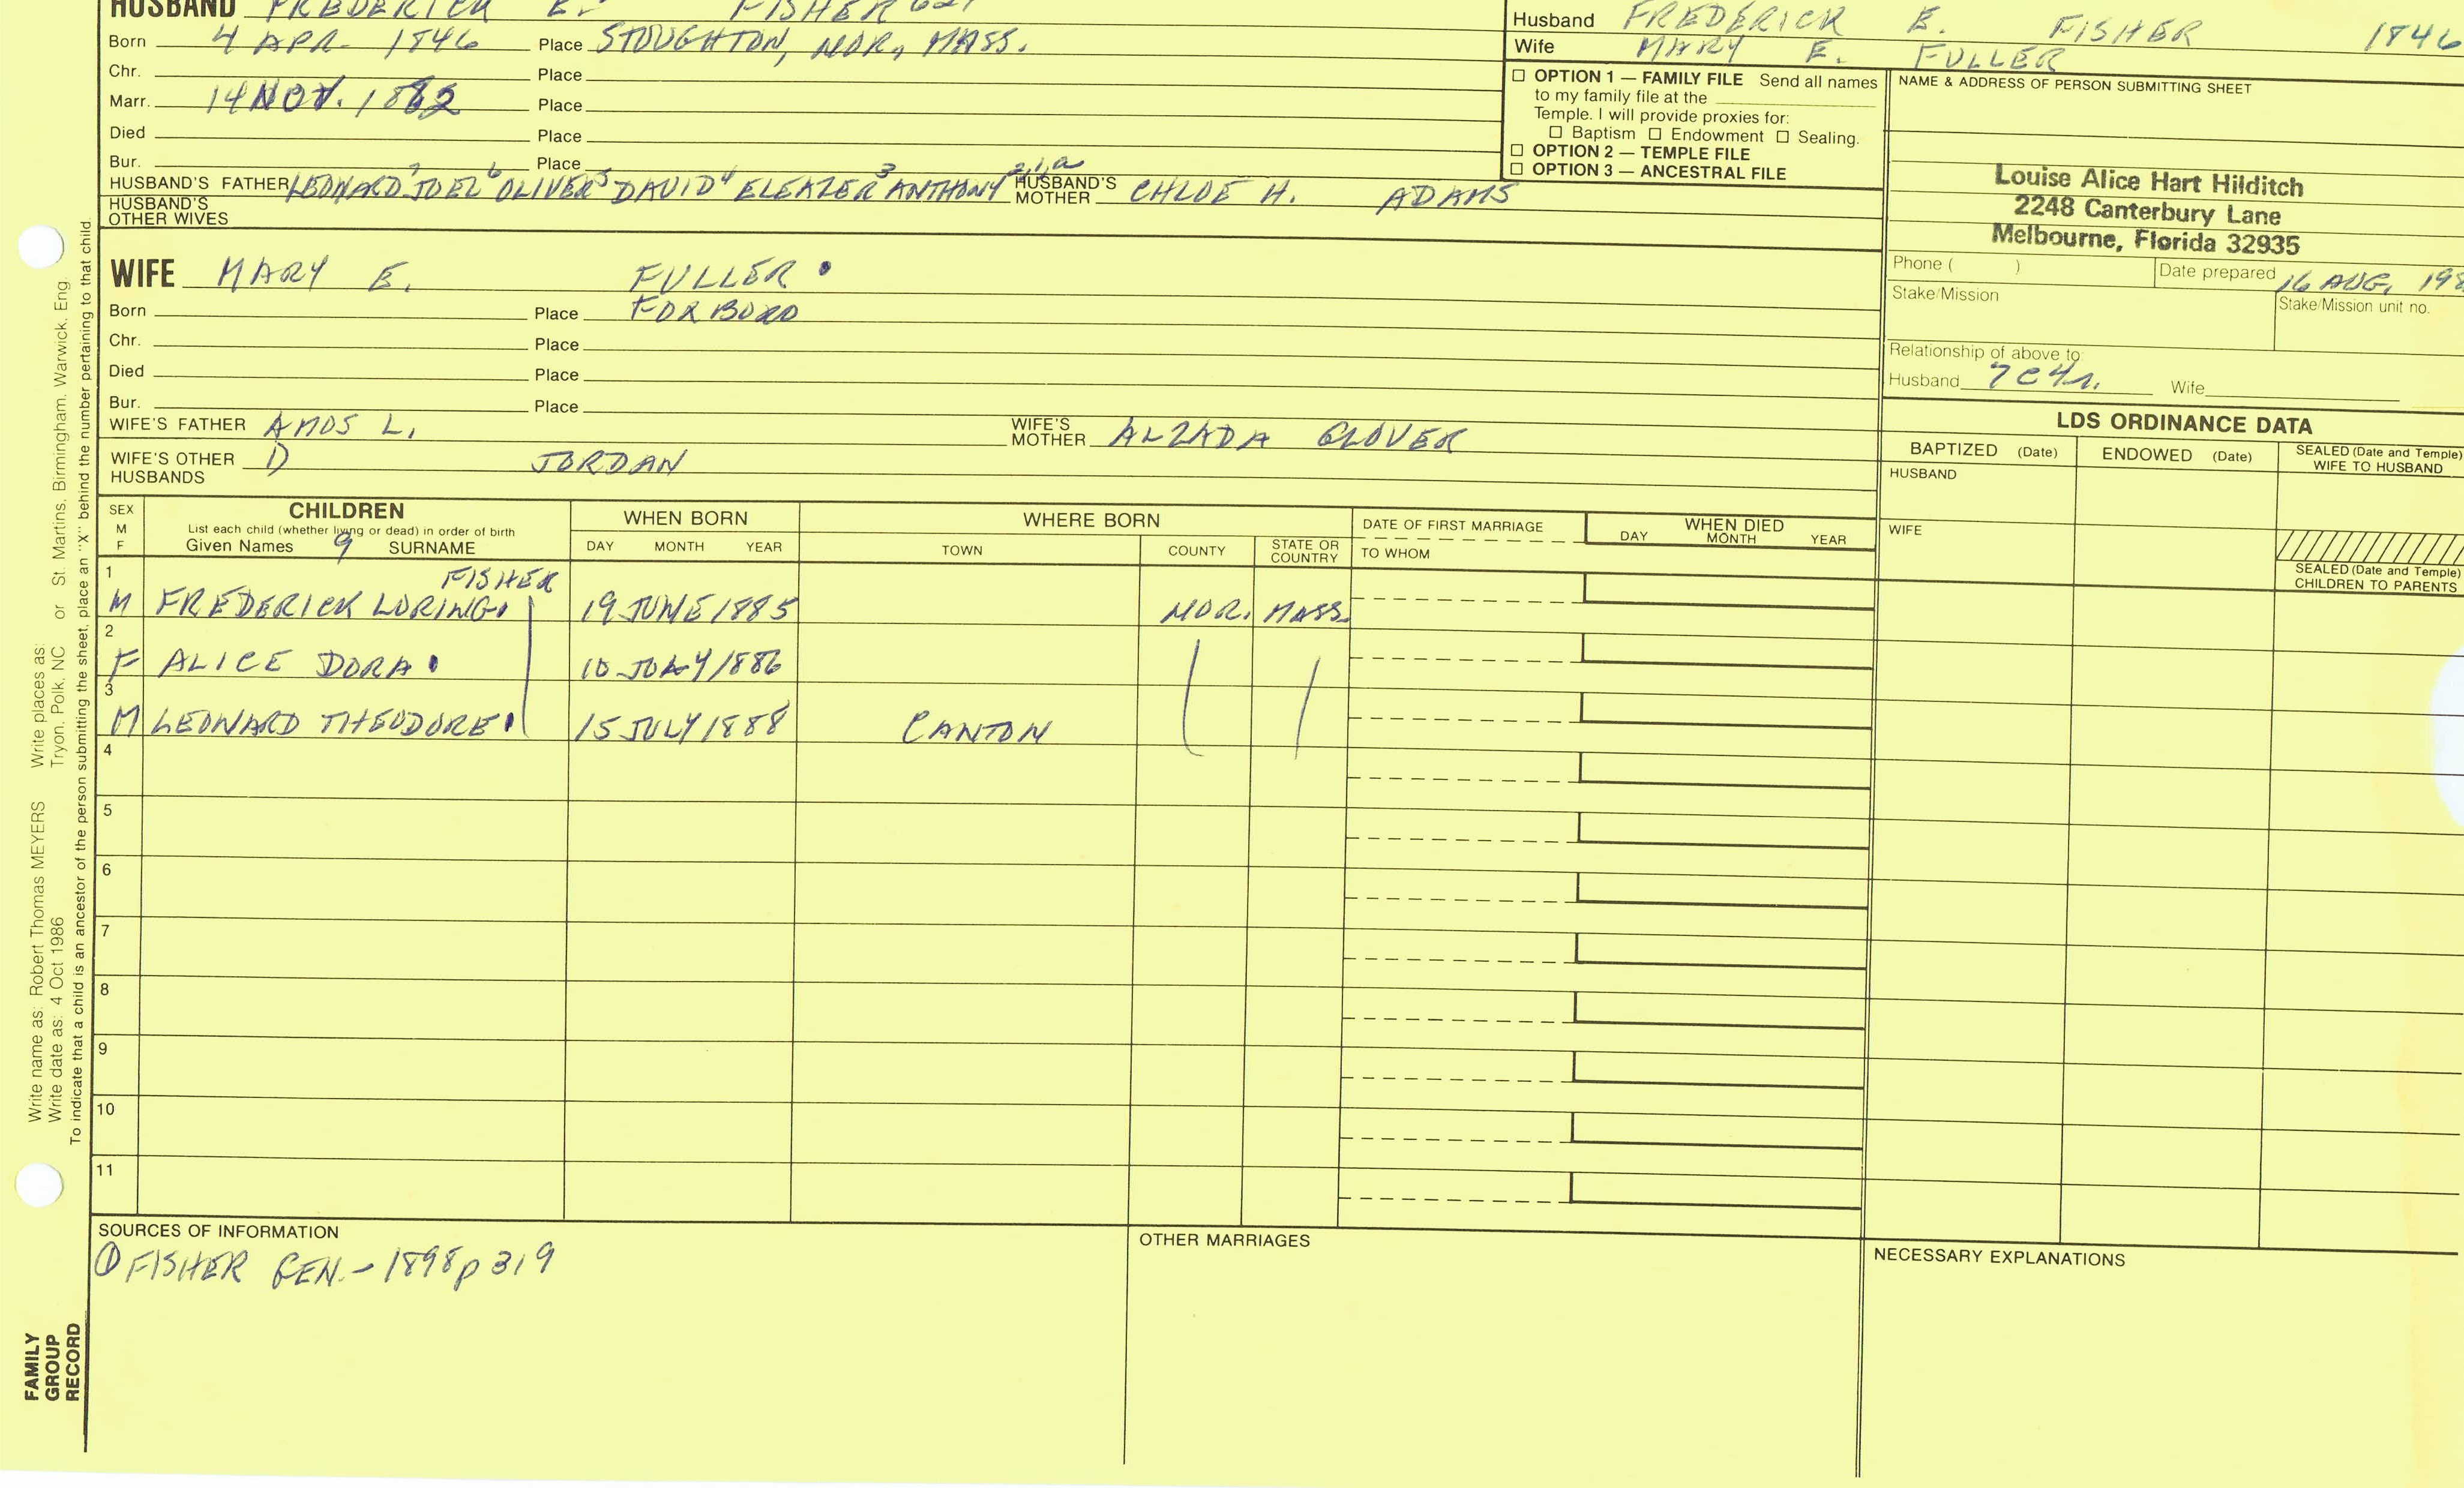 HUSBAND FREDERICK E. FISHER
Born 4 APR 1846 Place STOUGHTON, NOR, MASS.
Chr. Place
Marr. 14 NOV. 1882 Place
Died Place
Bur. Place
HUSBAND'S FATHER LEONARD7 JOEL6 OLIVER5 DAVID4 ELEAZER3 ANTHONY2,1,a HUSBAND'S MOTHER CHLOE H. ADAMS
HUSBAND'S OTHER WIVES
Husband FREDERICK E. FISHER 1846
Wife MARY E. FULLER
☐ OPTION 1 — FAMILY FILE Send all names
to my family file at the
Temple. I will provide proxies for:
☐ Baptism ☐ Endowment ☐ Sealing.
☐ OPTION 2 — TEMPLE FILE
☐ OPTION 3 — ANCESTRAL FILE
NAME & ADDRESS OF PERSON SUBMITTING SHEET
Louise Alice Hart Hilditch
2248 Canterbury Lane
Melbourne, Florida 32935
Phone ( ) Date prepared 16 AUG, 198
Stake/Mission Stake/Mission unit no.
Relationship of above to:
Husband 7C4r. Wife
WIFE MARY E. FULLER
Born Place FOXBORO
Chr. Place
Died Place
Bur. Place
WIFE'S FATHER AMOS L. WIFE'S MOTHER ALZADA GLOVER
WIFE'S OTHER HUSBANDS D JORDAN
LDS ORDINANCE DATA
BAPTIZED (Date) ENDOWED (Date) SEALED (Date and Temple) WIFE TO HUSBAND
HUSBAND
WIFE
SEALED (Date and Temple)
CHILDREN TO PARENTS
SEX M F
CHILDREN
List each child (whether living or dead) in order of birth
Given Names 9 SURNAME
WHEN BORN
DAY MONTH YEAR
WHERE BORN
TOWN COUNTY STATE OR COUNTRY
DATE OF FIRST MARRIAGE
TO WHOM
WHEN DIED
DAY MONTH YEAR
1 FISHER
M FREDERICK LORING 19 JUNE 1885 NOR. MASS.
2
F ALICE DORA 10 JULY 1886
3
M LEONARD THEODORE 15 JULY 1888 CANTON
4
5
6
7
8
9
10
11
SOURCES OF INFORMATION
① FISHER GEN. - 1898 p 319
OTHER MARRIAGES
NECESSARY EXPLANATIONS
Write name as: Robert Thomas MEYERS Write places as:
Write date as: 4 Oct 1986 Tryon, Polk, NC or St. Martins, Birmingham, Warwick, Eng.
To indicate that a child is an ancestor of the person submitting the sheet, place an "X" behind the number pertaining to that child.
FAMILY
GROUP
RECORD